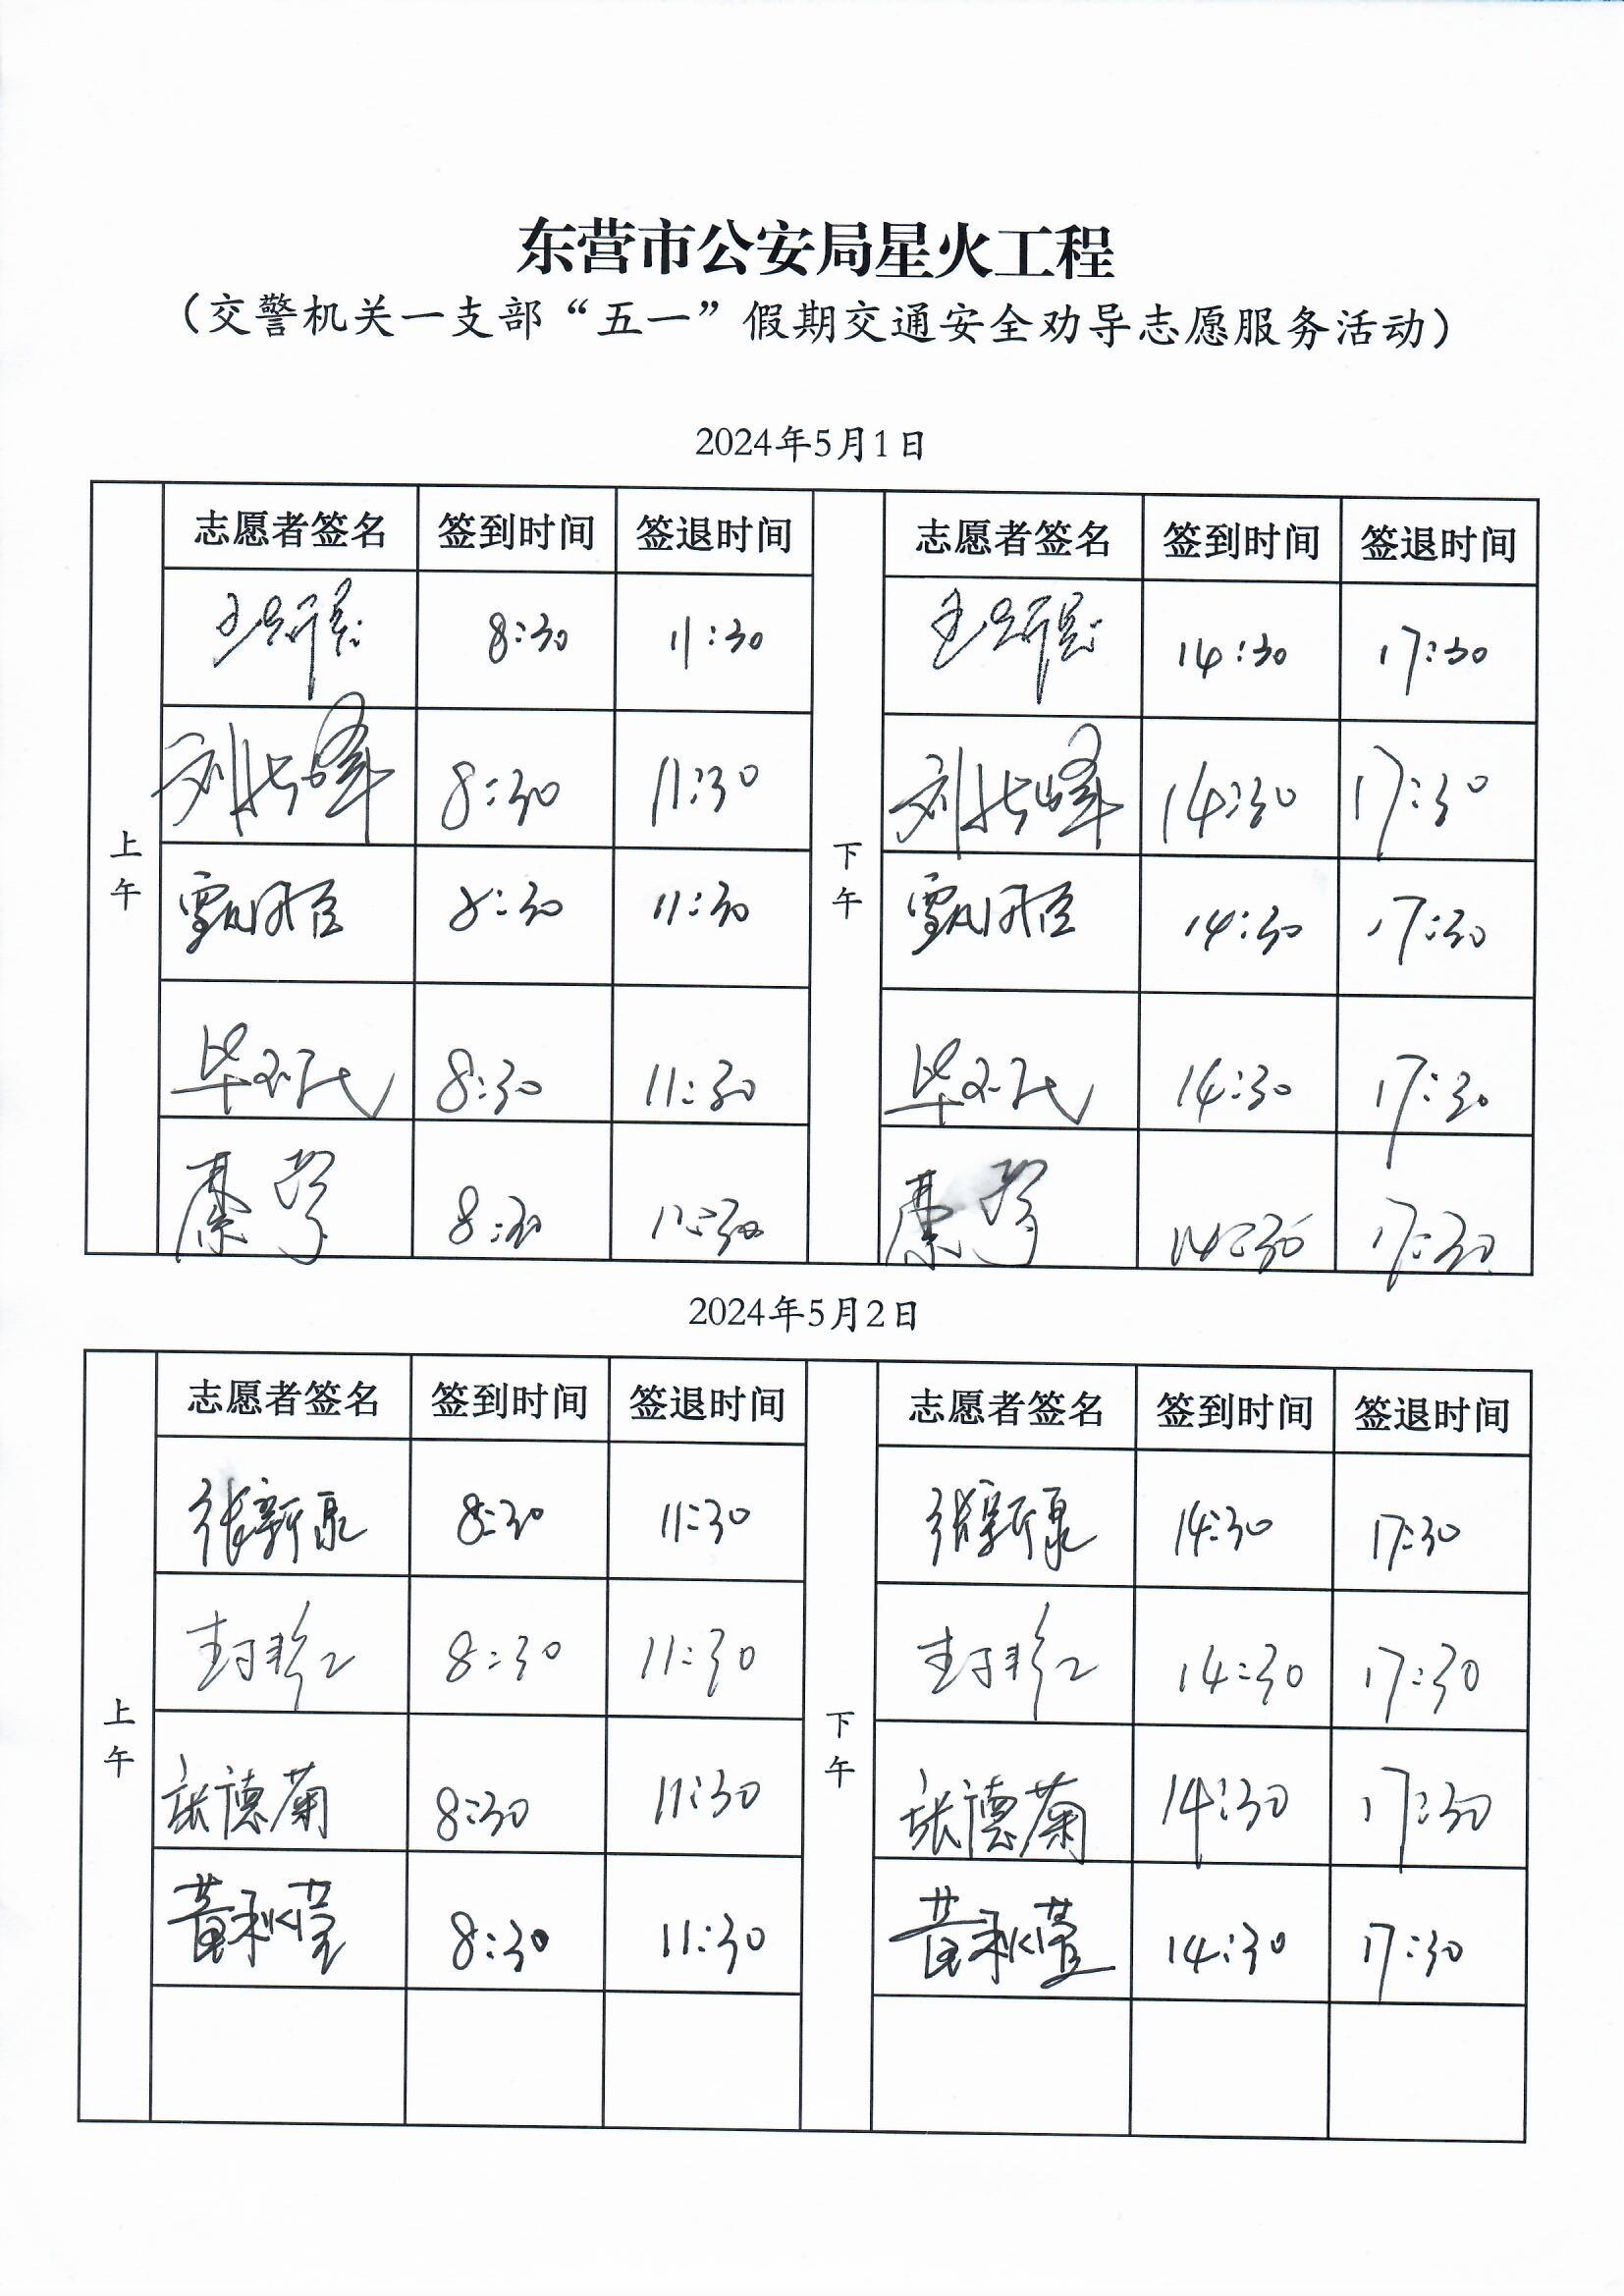 东营市公安局星火工程
（交警机关一支部“五一”假期交通安全劝导志愿服务活动）
2024年5月1日
上午 志愿者签名 签到时间 签退时间 下午 志愿者签名 签到时间 签退时间
8:30 11:30 14:30 17:30
刘长峰 8:30 11:30 刘长峰 14:30 17:30
8:30 11:30 14:30 17:30
8:30 11:30 14:30 17:30
秦 8:30 秦 14:30 17:30
2024年5月2日
上午 志愿者签名 签到时间 签退时间 下午 志愿者签名 签到时间 签退时间
张新泉 8:30 11:30 张新泉 14:30 17:30
封彩红 8:30 11:30 封彩红 14:30 17:30
张德菊 8:30 11:30 张德菊 14:30 17:30
黄秋莹 8:30 11:30 黄秋莹 14:30 17:30